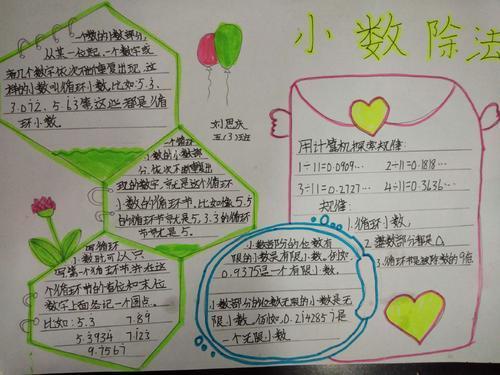 小数除法
一个数的小数部分,
从某一位起,一个数字或
者几个数字依次不断重复出现,这
样的小数叫循环小数。比如:5.3、
3.012、5.63等这些都是循
环小数。
五/3班
一个循环
小数的小数部
分,依次不断重复出
现的数字,就是这个循环
小数的循环节,比如像5.5
的循环节就是5,3.3的循环
节就是5。
写循环
小数时可以只
写第一个循环节并在这
个循环节的首位和末位
数字上面各记一个圆点。
比如:5.3 7.89
5.3934 7.123
9.7567
用计算机探索规律:
1÷11=0.0909… 2÷11=0.1818…
3÷11=0.2727… 4÷11=0.3636…
规律:
1.循环小数。
2.整数部分都是
3.循环节是被除数的9倍
小数部分的位数有
限的小数是有限小数。例如,
0.9375是一个有限小数。
小数部分的位数无限的小数是无
限小数。例如,0.2142857是
一个无限小数